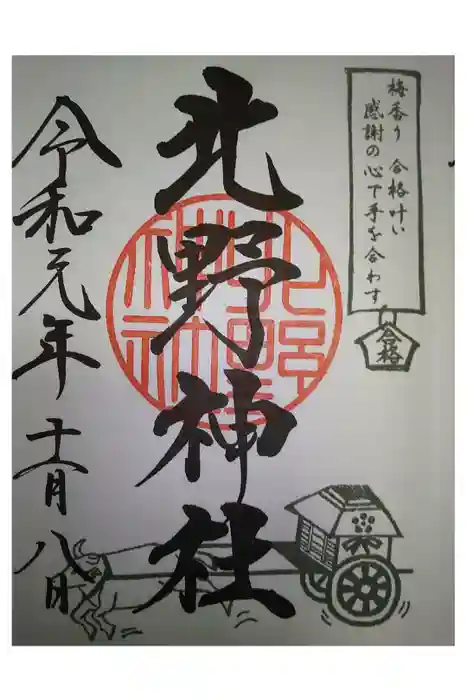 梅香り 合格叶い
感謝の心で手を合わす
合格
北野神社
令和元年十一月八日